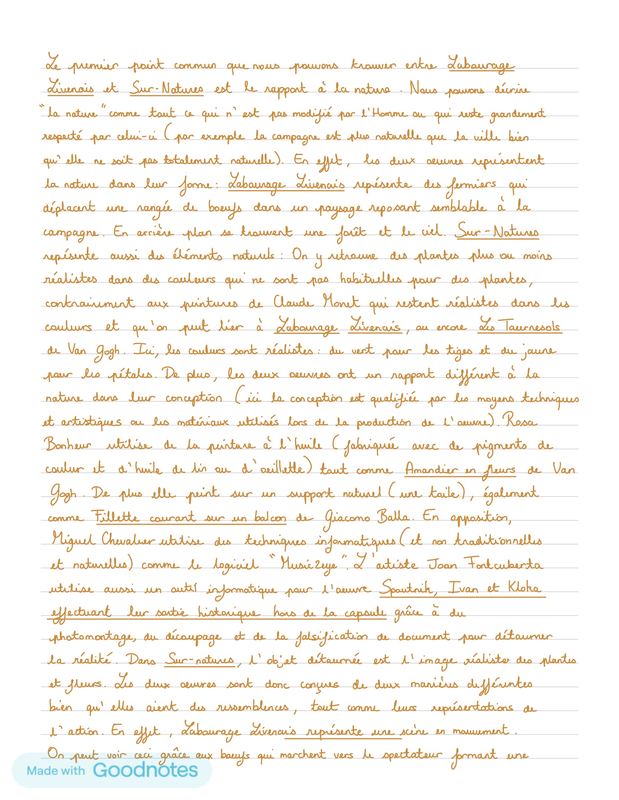 Le premier point commun que nous pouvons trouver entre Labourage
Livenais et Sur-Natures est le rapport à la nature. Nous pouvons décrire
"la nature" comme tout ce qui n'est pas modifié par l'Homme ou qui reste grandement
respecté par celui-ci (par exemple la campagne est plus naturelle que la ville bien
qu'elle ne soit pas totalement naturelle). En effet, les deux oeuvres représentent
la nature dans leur forme : Labourage Livenais représente des fermiers qui
déplacent une rangée de boeufs dans un paysage reposant semblable à la
campagne. En arrière plan se trouvent une forêt et le ciel. Sur-Natures
représente aussi des éléments naturels : On y retrouve des plantes plus ou moins
réalistes dans des couleurs qui ne sont pas habituelles pour des plantes,
contrairement aux peintures de Claude Monet qui restent réalistes dans les
couleurs et qu'on peut lier à Labourage Livenais, ou encore Les Tournesols
de Van Gogh. Ici, les couleurs sont réalistes : du vert pour les tiges et du jaune
pour les pétales. De plus, les deux oeuvres ont un rapport différent à la
nature dans leur conception (ici la conception est qualifiée par les moyens techniques
et artistiques ou les matériaux utilisés lors de la production de l'oeuvre). Rosa
Bonheur utilise de la peinture à l'huile (fabriquée avec de pigments de
couleur et d'huile de lin ou d'oeillette) tout comme Amandier en fleurs de Van
Gogh. De plus elle peint sur un support naturel (une toile), également
comme Fillette courant sur un balcon de Giacomo Balla. En opposition,
Miguel Chevalier utilise des techniques informatiques (et non traditionnelles
et naturelles) comme le logiciel "Music2eye". L'artiste Joan Fontcuberta
utilise aussi un outil informatique pour l'oeuvre Spoutnik, Ivan et Kloka
effectuant leur sortie historique hors de la capsule grâce à du
photomontage, du découpage et de la falsification de document pour détourner
la réalité. Dans Sur-natures, l'objet détournée est l'image réaliste des plantes
et fleurs. Les deux oeuvres sont donc conçues de deux manières différentes
bien qu'elles aient des ressemblences, tout comme leurs représentations de
l'action. En effet, Labourage Livenais représente une scène en mouvement.
On peut voir ceci grâce aux boeufs qui marchent vers le spectateur formant une
Made with Goodnotes